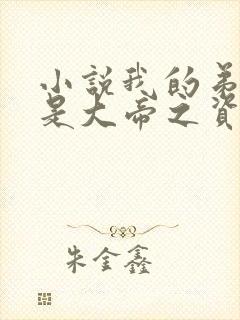 小說我的弟
是大帝之資
朱金鑫